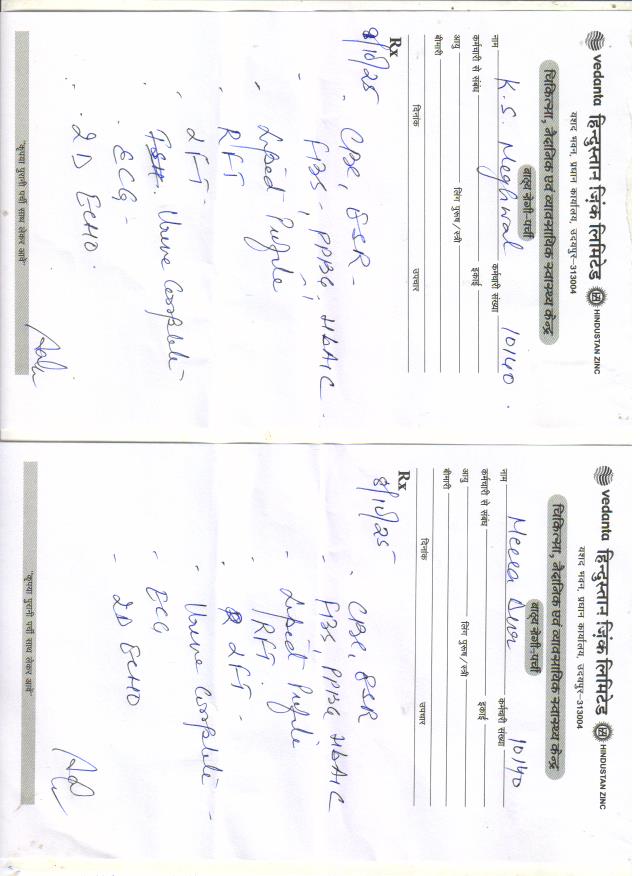 vedanta हिन्दुस्तान ज़िंक लिमिटेड HINDUSTAN ZINC
यशद भवन, प्रधान कार्यालय, उदयपुर-313004
चिकित्सा, नैदानिक एवं व्यावसायिक स्वास्थ्य केन्द्र
बाह्य रोगी-पर्ची
नाम K.S. Meghwal कर्मचारी संख्या 10140
कर्मचारी से संबंध इकाई
आयु लिंग पुरूष/स्त्री
बीमारी
Rx दिनांक उपचार
8/10/25
CBC, ESR -
FBS -, PPBG, HbA1C.
Lipid Profile
RFT
LFT
Urine Complete
ECG
2D ECHO
"कृपया पुरानी पर्ची साथ लेकर आवें"
vedanta हिन्दुस्तान ज़िंक लिमिटेड HINDUSTAN ZINC
यशद भवन, प्रधान कार्यालय, उदयपुर-313004
चिकित्सा, नैदानिक एवं व्यावसायिक स्वास्थ्य केन्द्र
बाह्य रोगी-पर्ची
नाम Meera कर्मचारी संख्या 10140
कर्मचारी से संबंध इकाई
आयु लिंग पुरूष/स्त्री
बीमारी
Rx दिनांक उपचार
8/10/25
CBC, ESR
FBS, PPBG HbA1C
Lipid Profile
RFT
LFT -
Urine Complete -
ECG
2D ECHO
"कृपया पुरानी पर्ची साथ लेकर आवें"